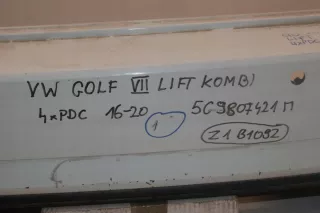 VW GOLF VII LIFT KOMBI
4xPDC 16-20 5G9807421M
1
Z1 B1092